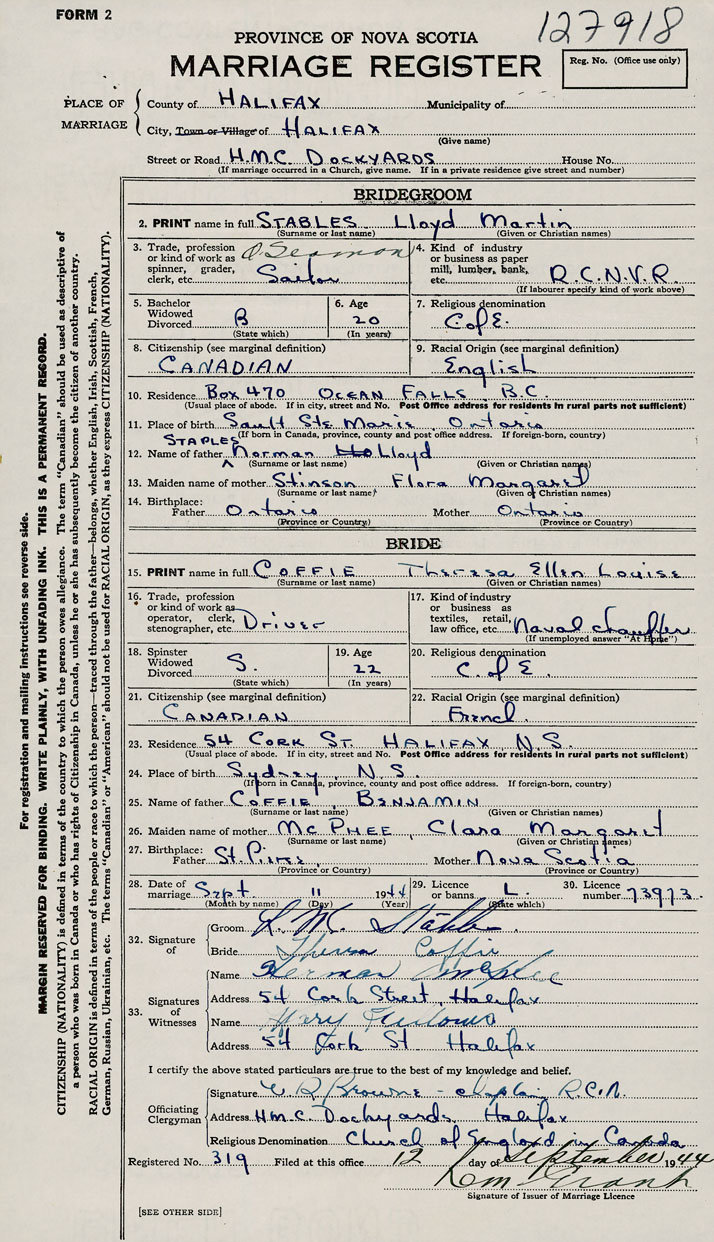 FORM 2
127918
PROVINCE OF NOVA SCOTIA
MARRIAGE REGISTER
Reg. No. (Office use only)
PLACE OF MARRIAGE
County of HALIFAX Municipality of
City, Town or Village of HALIFAX
(Give name)
Street or Road H.M.C. DOCKYARDS House No.
(If marriage occurred in a Church, give name. If in a private residence give street and number)
BRIDEGROOM
2. PRINT name in full STABLES Lloyd Martin
(Surname or last name) (Given or Christian names)
3. Trade, profession or kind of work as spinner, grader, clerk, etc. O. Seaman Sailor
4. Kind of industry or business as paper mill, lumber, bank, etc. R.C.N.V.R.
(If labourer specify kind of work above)
5. Bachelor Widowed Divorced B
(State which)
6. Age 20
(In years)
7. Religious denomination C of E.
8. Citizenship (see marginal definition) CANADIAN
9. Racial Origin (see marginal definition) English
10. Residence Box 470 OCEAN FALLS, B.C.
(Usual place of abode. If in city, street and No. Post Office address for residents in rural parts not sufficient)
11. Place of birth Sault Ste Marie, Ontario
(If born in Canada, province, county and post office address. If foreign-born, country)
STAPLES
12. Name of father Norman Lloyd
(Surname or last name) (Given or Christian names)
13. Maiden name of mother Stinson Flora Margaret
(Surname or last name) (Given or Christian names)
14. Birthplace: Father Ontario Mother Ontario
(Province or Country) (Province or Country)
BRIDE
15. PRINT name in full COFFIE Theresa Ellen Louise
(Surname or last name) (Given or Christian names)
16. Trade, profession or kind of work as operator, clerk, stenographer, etc. Driver
17. Kind of industry or business as textiles, retail, law office, etc. Naval chauffer
(If unemployed answer "At Home")
18. Spinster Widowed Divorced S.
(State which)
19. Age 22
(In years)
20. Religious denomination C. of E.
21. Citizenship (see marginal definition) CANADIAN
22. Racial Origin (see marginal definition) French.
23. Residence 54 CORK ST. HALIFAX, N.S.
(Usual place of abode. If in city, street and No. Post Office address for residents in rural parts not sufficient)
24. Place of birth Sydney, N.S.
(If born in Canada, province, county and post office address. If foreign-born, country)
25. Name of father COFFIE, BENJAMIN
(Surname or last name) (Given or Christian names)
26. Maiden name of mother MC PHEE, Clara Margaret
(Surname or last name) (Given or Christian names)
27. Birthplace: Father St. Mother Nova Scotia
(Province or Country) (Province or Country)
28. Date of marriage Sept. 11 1944
(Month by name) (Day) (Year)
29. Licence or banns L.
(State which)
30. Licence number 73973.
32. Signature of
Groom L. M. Stables
Bride Theresa Coffie
33. Signatures of Witnesses
Name Herman McPhee
Address 54 Cork Street, Halifax
Name Mary
Address 54 Cork St Halifax
I certify the above stated particulars are true to the best of my knowledge and belief.
Officiating Clergyman
Signature Browne - chaplain R.C.N.
Address H.M.C. Dockyards, Halifax
Religious Denomination Church of England in Canada
Registered No. 319 Filed at this office 12 day of September 1944
Signature of Issuer of Marriage Licence
[SEE OTHER SIDE]
For registration and mailing instructions see reverse side.
MARGIN RESERVED FOR BINDING. WRITE PLAINLY, WITH UNFADING INK. THIS IS A PERMANENT RECORD.
CITIZENSHIP (NATIONALITY) is defined in terms of the country to which the person owes allegiance. The term "Canadian" should be used as descriptive of
a person who was born in Canada or who has rights of Citizenship in Canada, unless he or she has subsequently become the citizen of another country.
RACIAL ORIGIN is defined in terms of the people or race to which the person—traced through the father—belongs, whether English, Irish, Scottish, French,
German, Russian, Ukrainian, etc. The terms "Canadian" or "American" should not be used for RACIAL ORIGIN, as they express CITIZENSHIP (NATIONALITY).